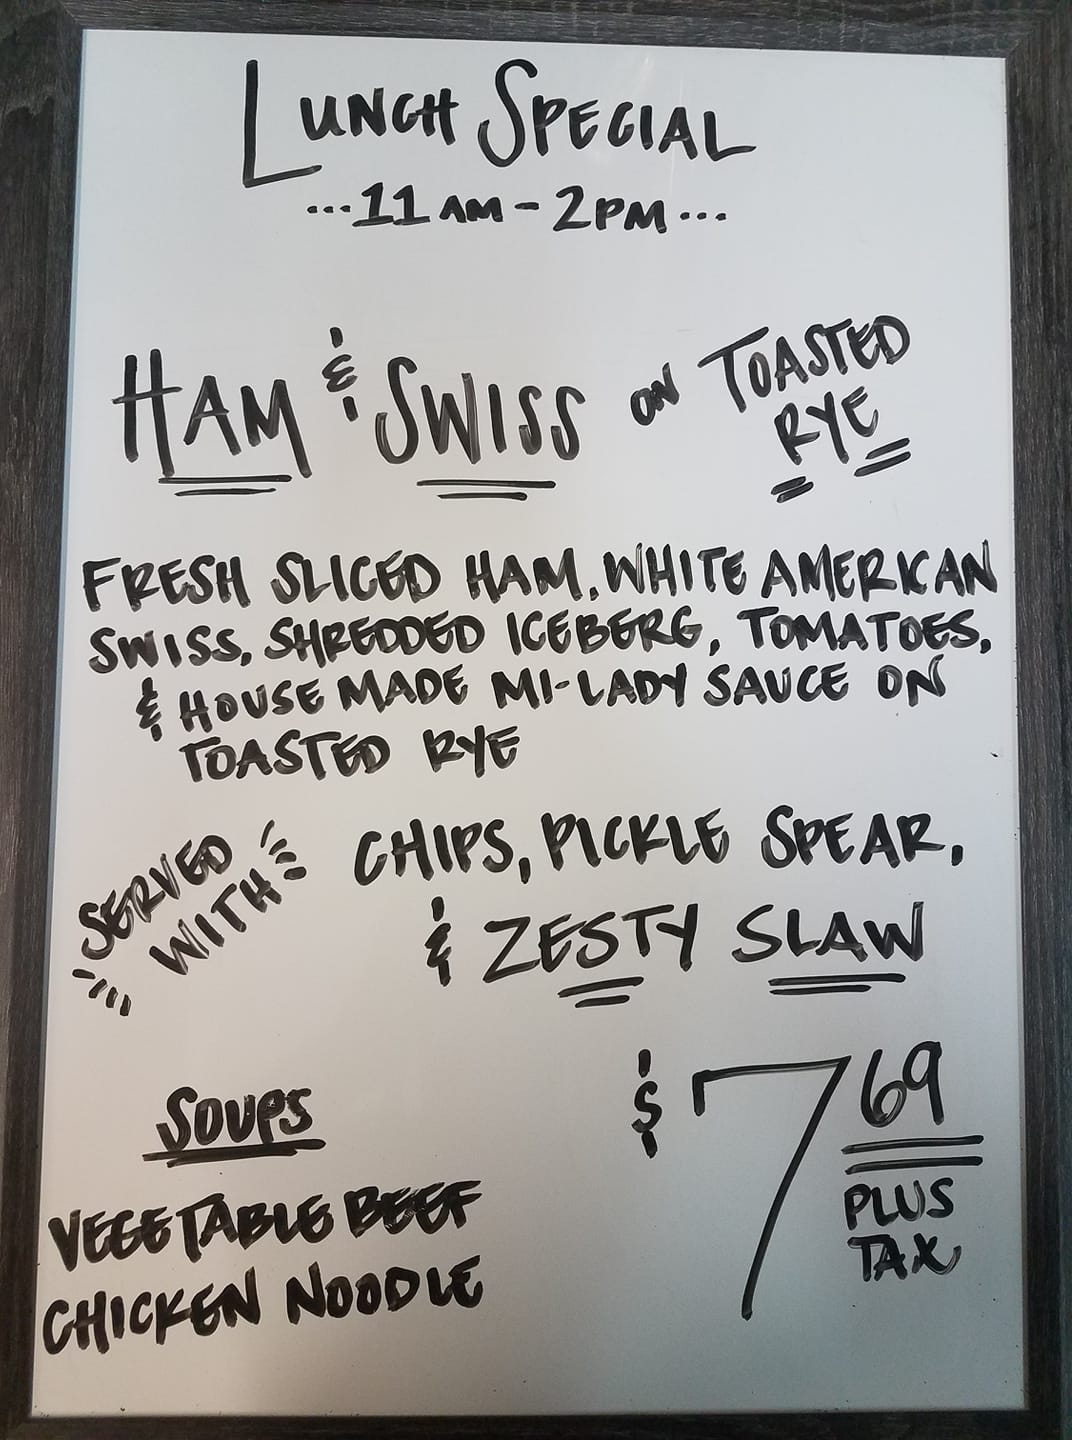 LUNCH SPECIAL
...11AM - 2PM...
HAM & SWISS ON TOASTED
RYE
FRESH SLICED HAM, WHITE AMERICAN
SWISS, SHREDDED ICEBERG, TOMATOES,
& HOUSE MADE MI-LADY SAUCE ON
TOASTED RYE
SERVED
WITH
CHIPS, PICKLE SPEAR,
& ZESTY SLAW
$7.69
PLUS
TAX
SOUPS
VEGETABLE BEEF
CHICKEN NOODLE